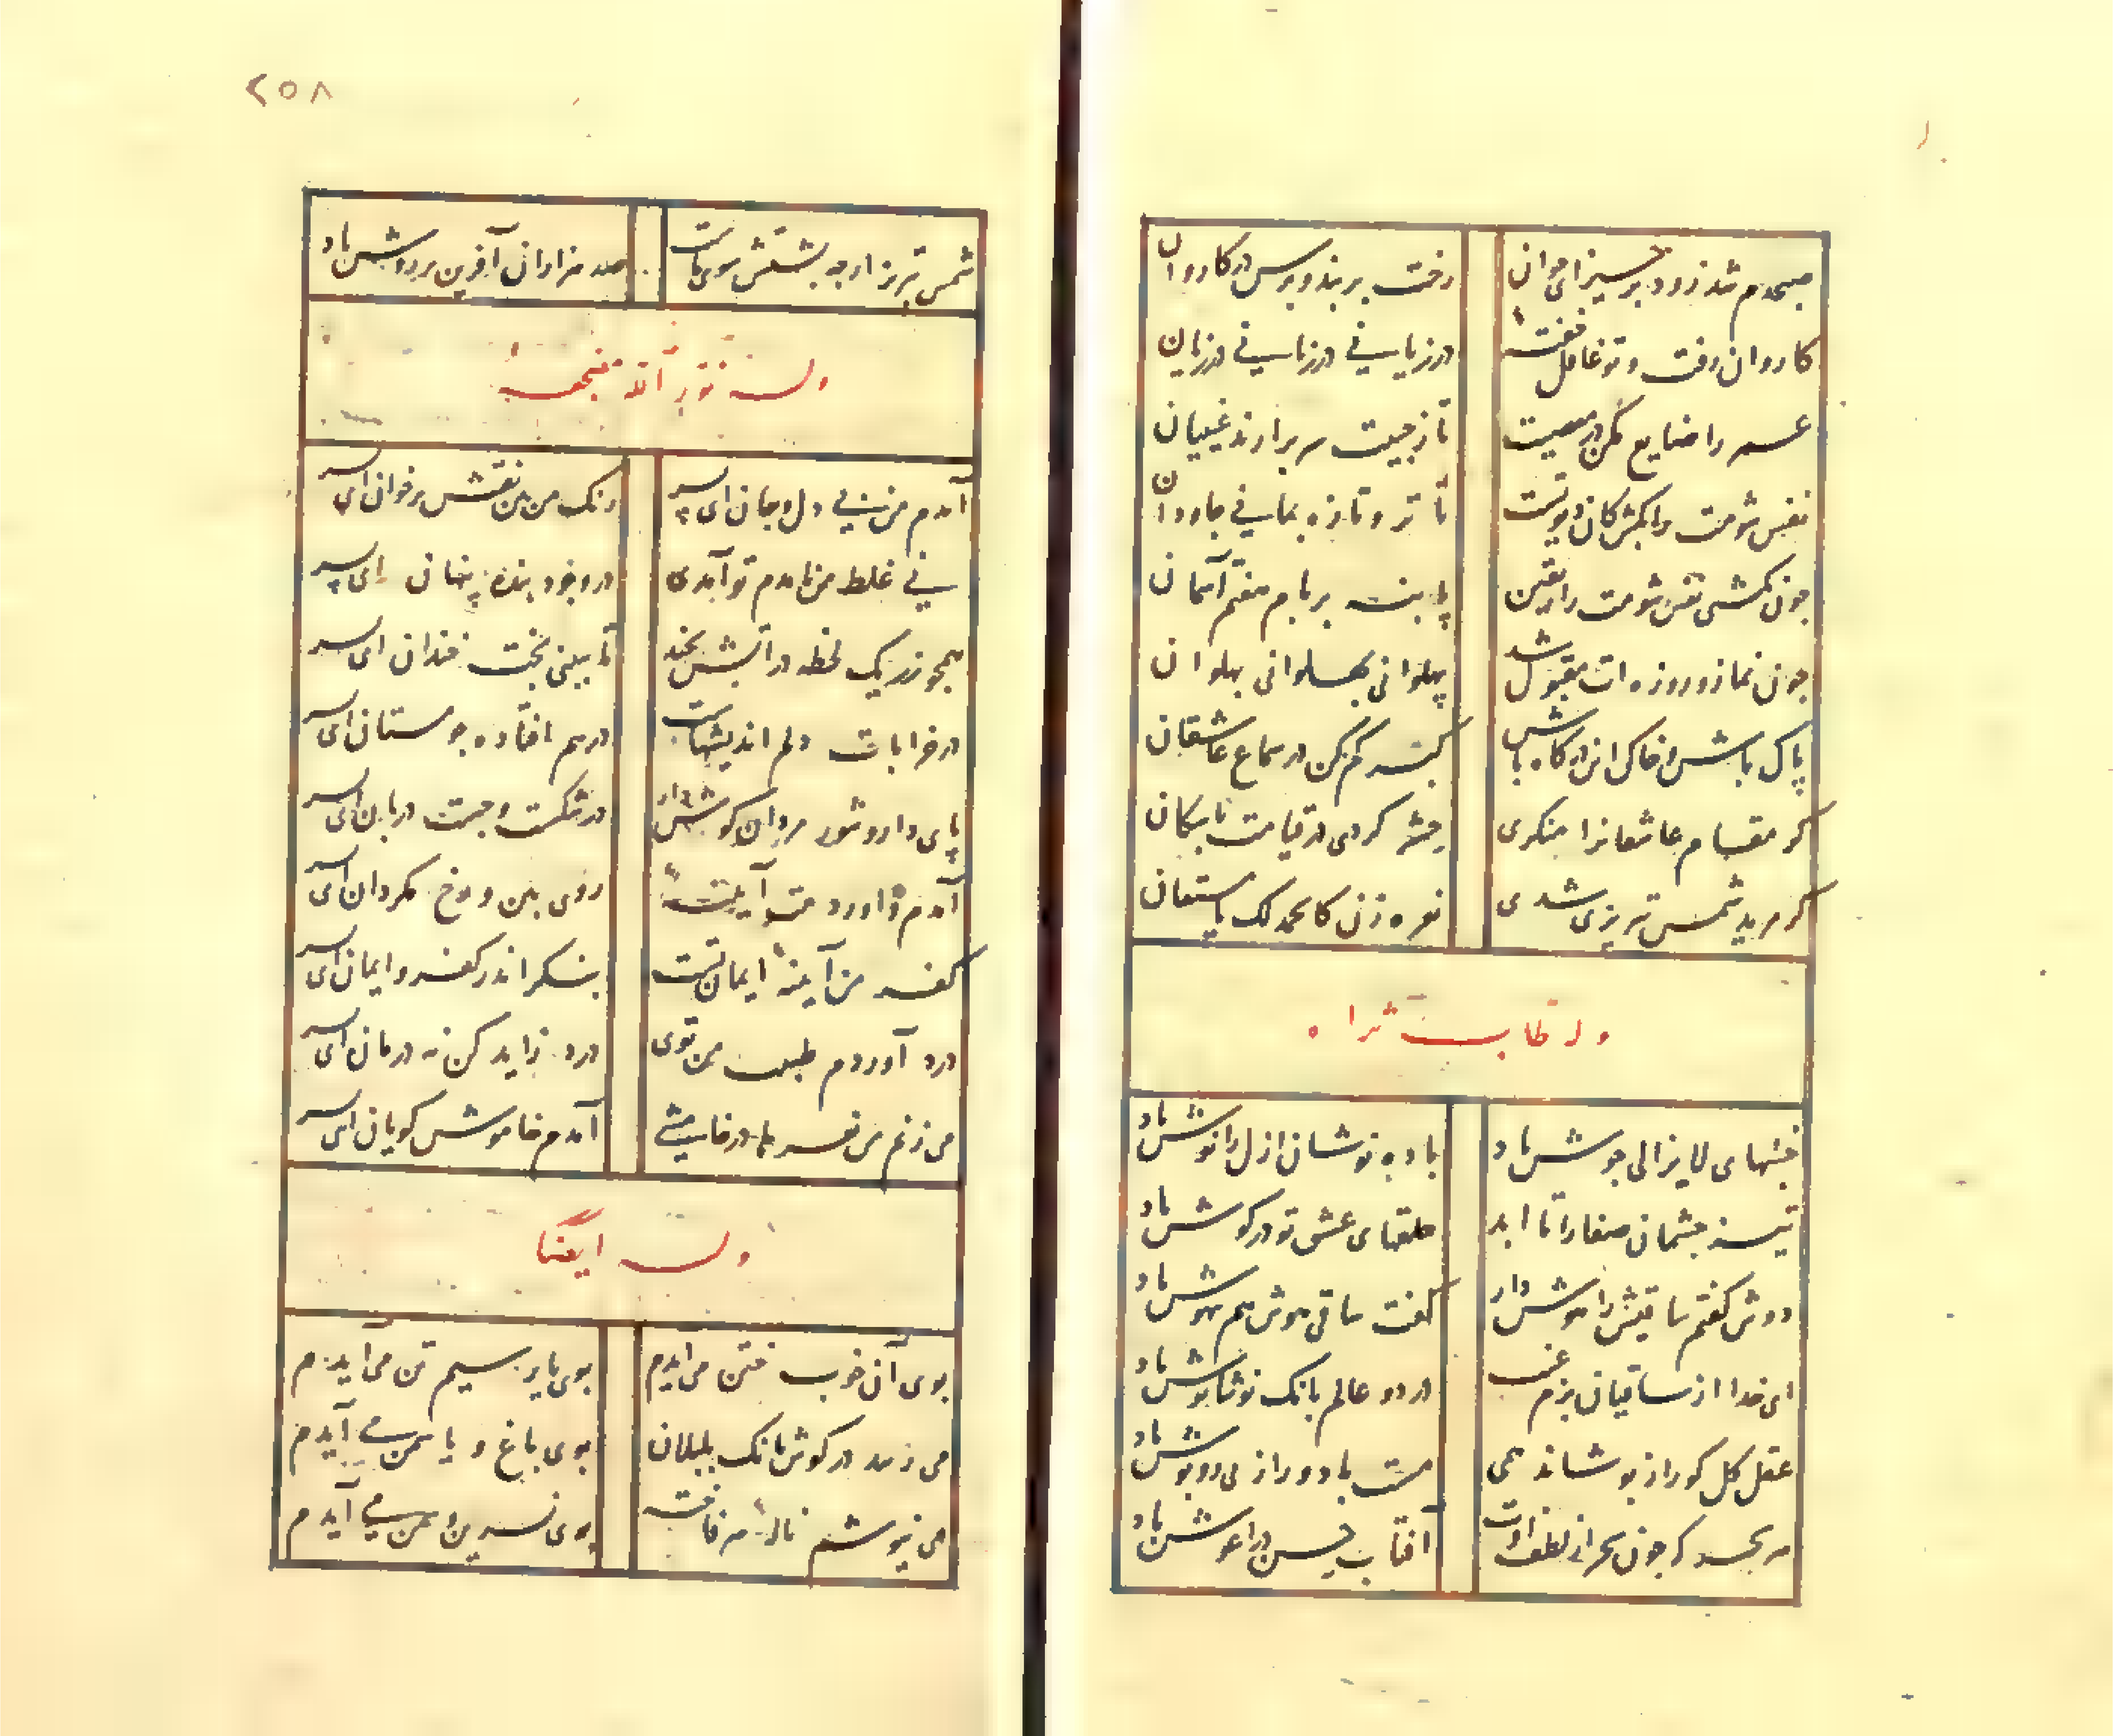 صبحدم شد زود برخیز ای جوان رخت بربند و برس در کاروان
کاروان رفت و تو غافل خفتهٔ در زیانی در زیانی در زیان
عمر را ضایع مکن در معصیت تا ز جیبت سر برآرند غیبیان
نفس شومت را بکش کان دیو تست تا تر و تازه بمانی جاودان
چون بکشتی نفس شومت را یقین پا بنه بر بام هفتم آسمان
چون نماز و روزه ات مقبول شد پهلوانی پهلوانی پهلوان
پاک باش و خاک این درگاه باش کبر کم کن در سماع عاشقان
کر سماع عاشقانرا منکری حشر کردی در قیامت با سکان
کر مرید شمس تبریزی شدی نعره زن کالحمد لک یا مستعان
وله طاب ثراه
خنبهای لایزالی جوش باد باده نوشان ازل را نوش باد
تیز چشمان صفا را تا ابد حلقهای عشق تو در کوش باد
دوش کفتم ساقیش را هوش دار کفت ساقی هوش هم بیهوش باد
ای خدا از ساقیان بزم غیب در دو عالم بانک نوشانوش باد
عقل کل کو راز پوشاند همی مست باد و راز بی روپوش باد
هر سحر کو چون سحر از لطف اوست آفتاب حسن در آغوش باد
۲۵۸
شمس تبریز ار چه پشتش سوی ماست صد هزاران آفرین بر روش باد
وله نور الله مضجعه
آمدم من بی دل و جان ای پسر رنک من بین نقش برخوان ای پسر
نی غلط من نامدم تو آمدی در وجود بنده پنهان ای پسر
همچو زر یک لحظه در آتش بخند تا ببینی بخت خندان ای پسر
در خرابات دلم اندیشهاست در هم افتاده چو مستان ای پسر
پای دار و شور مردان کوش دار در شکست و جست دربان ای پسر
آمدم و آوردمت آیینهٔ روی بین و رخ مکردان ای پسر
کفر من آیینهٔ ایمان تست بنکر اندر کفر و ایمان ای پسر
درد آوردم طبیب من توی درد زاید کن نه درمان ای پسر
می زنم من نعرها در خامشی آمدم خاموش کویان ای پسر
وله ایضا
بوی آن خوب ختن می آیدم بوی یار سیم تن می آیدم
می رسد در کوش بانک بلبلان بوی باغ و یاسمن می آیدم
می نیوشم نالهٔ هر فاخته بوی نسرین و سمن می آیدم